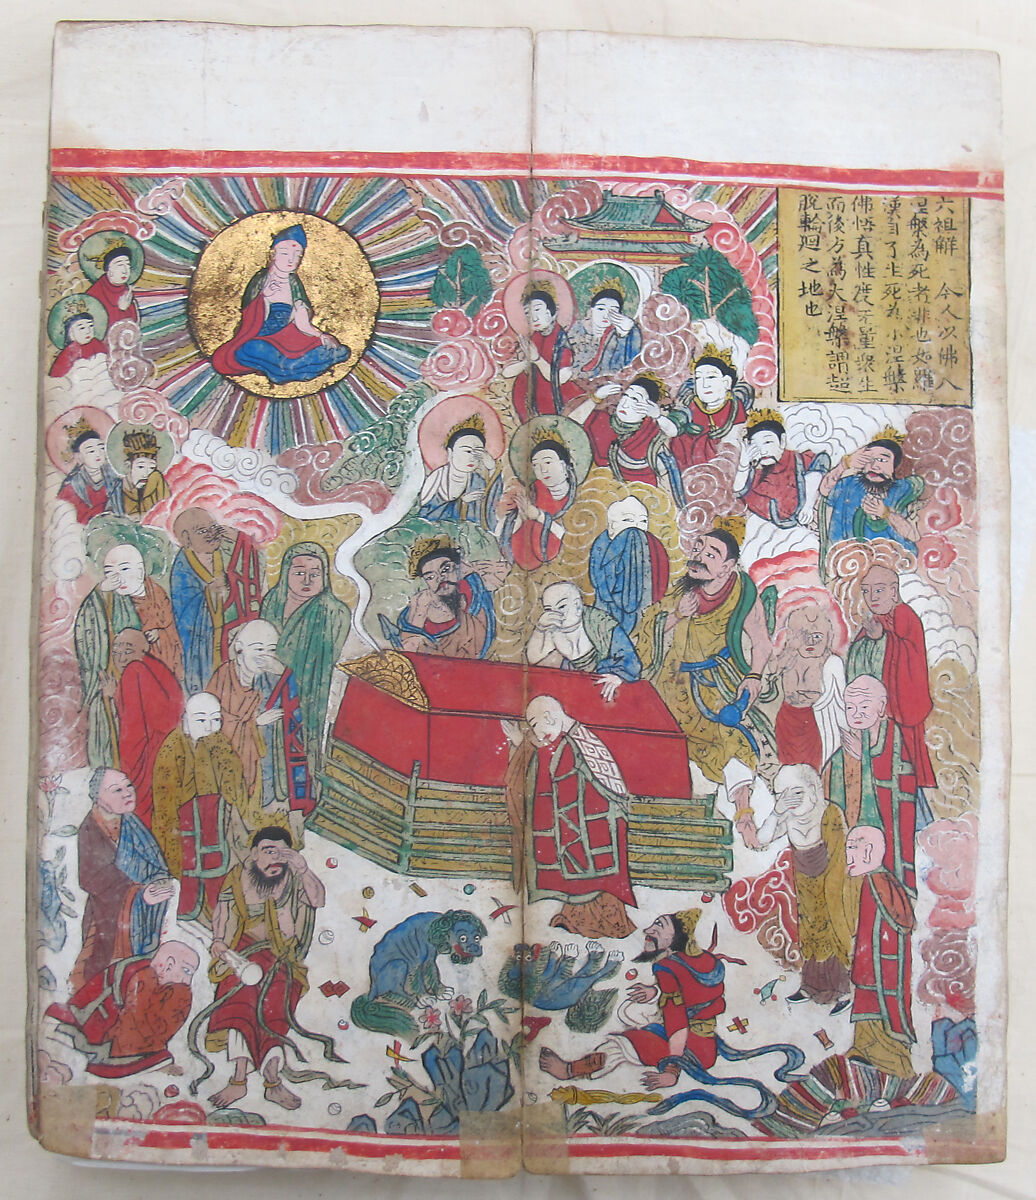 六祖解　今人以佛入
涅槃為死者非也如羅
漢自了生死為小涅槃
佛悟真性度无量衆生
而後方為大涅槃謂超
脫輪迴之地也